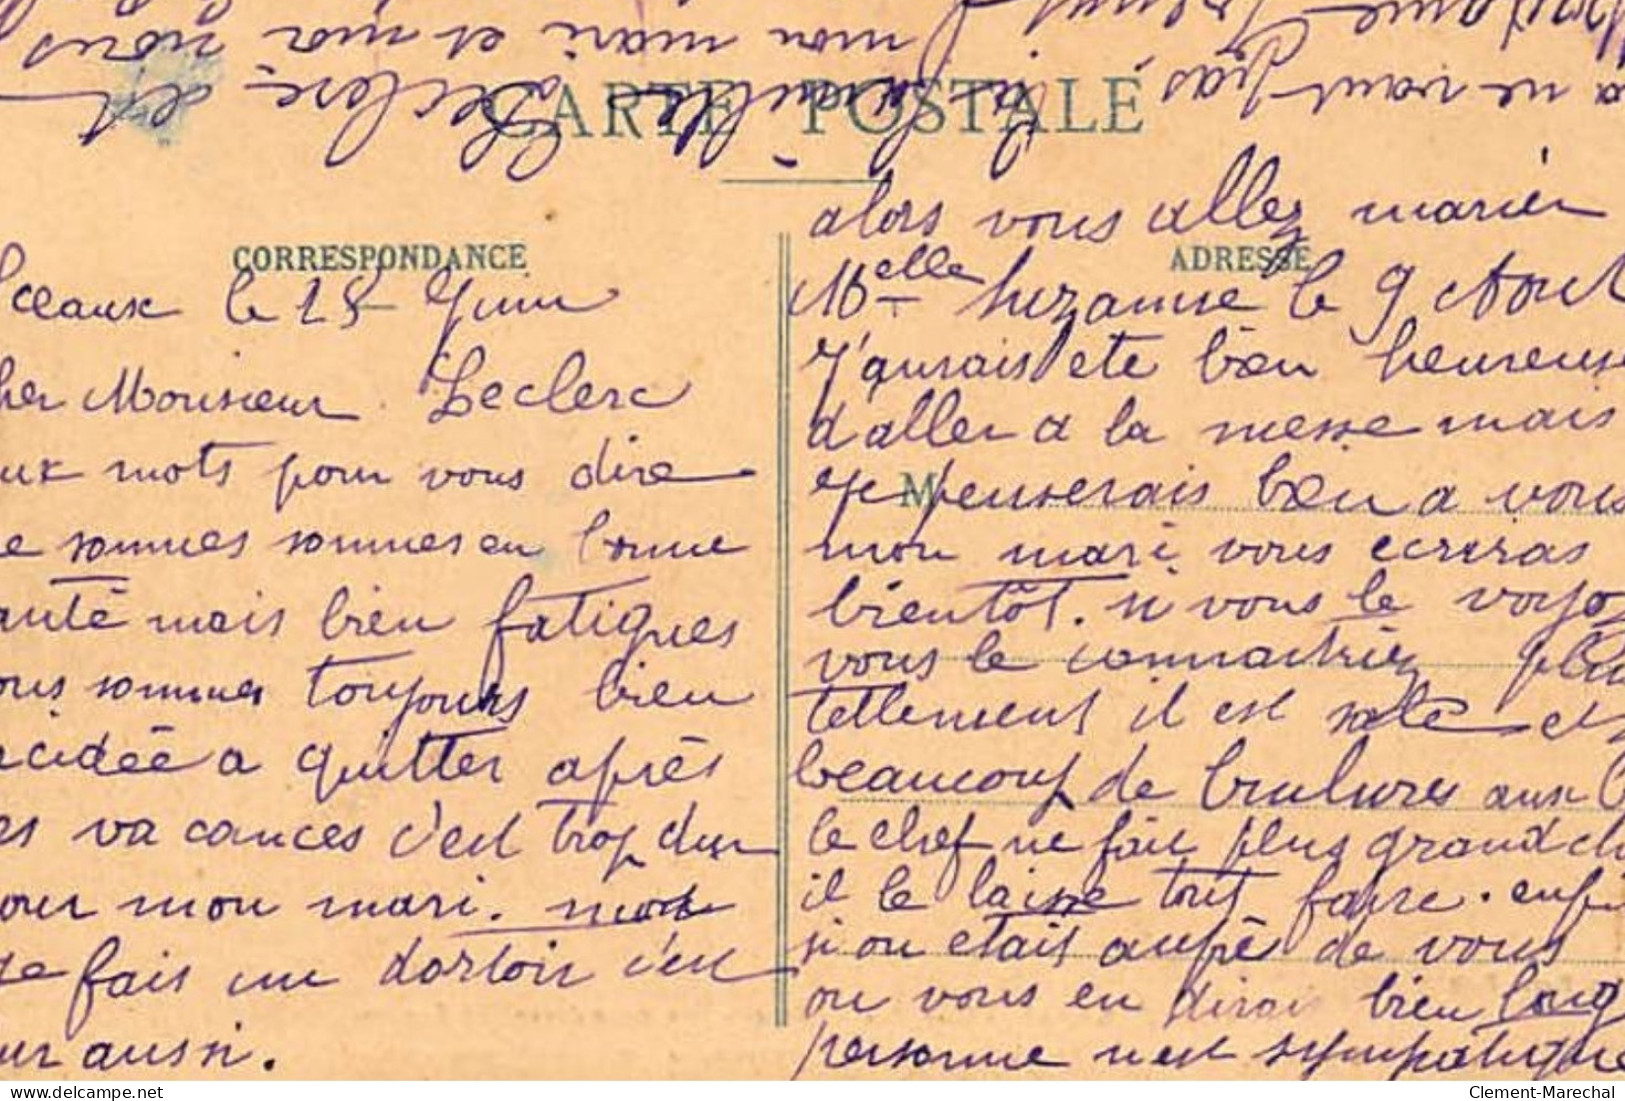 CARTE POSTALE
CORRESPONDANCE
Sceaux le 28 Juin
cher Monsieur Leclerc
ux mots pour vous dire
e sommes sommes en bonne
anté mais bien fatigues
ous sommes toujours bien
ecidée a quitter après
es va cances c'est trop dur
our mon mari. moi
je fais un dortoir c'est
ur aussi.
ADRESSE
M
alors vous allez marier
Melle Suzanne le 9 Aout
J'aurais ete bien heureuse
d'aller a la messe mais
je penserais bien a vous
mon mari vous ecriras
bientôt. si vous le voyez
vous le connaitriez plu
tellement il est sale et
beaucoup de brulures aux b
le chef ne fait plus grand ch
il le laisse tout faire. enfi
si on etais auprè de vous
on vous en dirais bien long
personne n'est sympathique
a ne vaut pas la famille Leclerc et
mon mari et moi nous